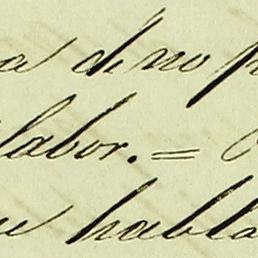 a de no p
labor. = O
ue habla